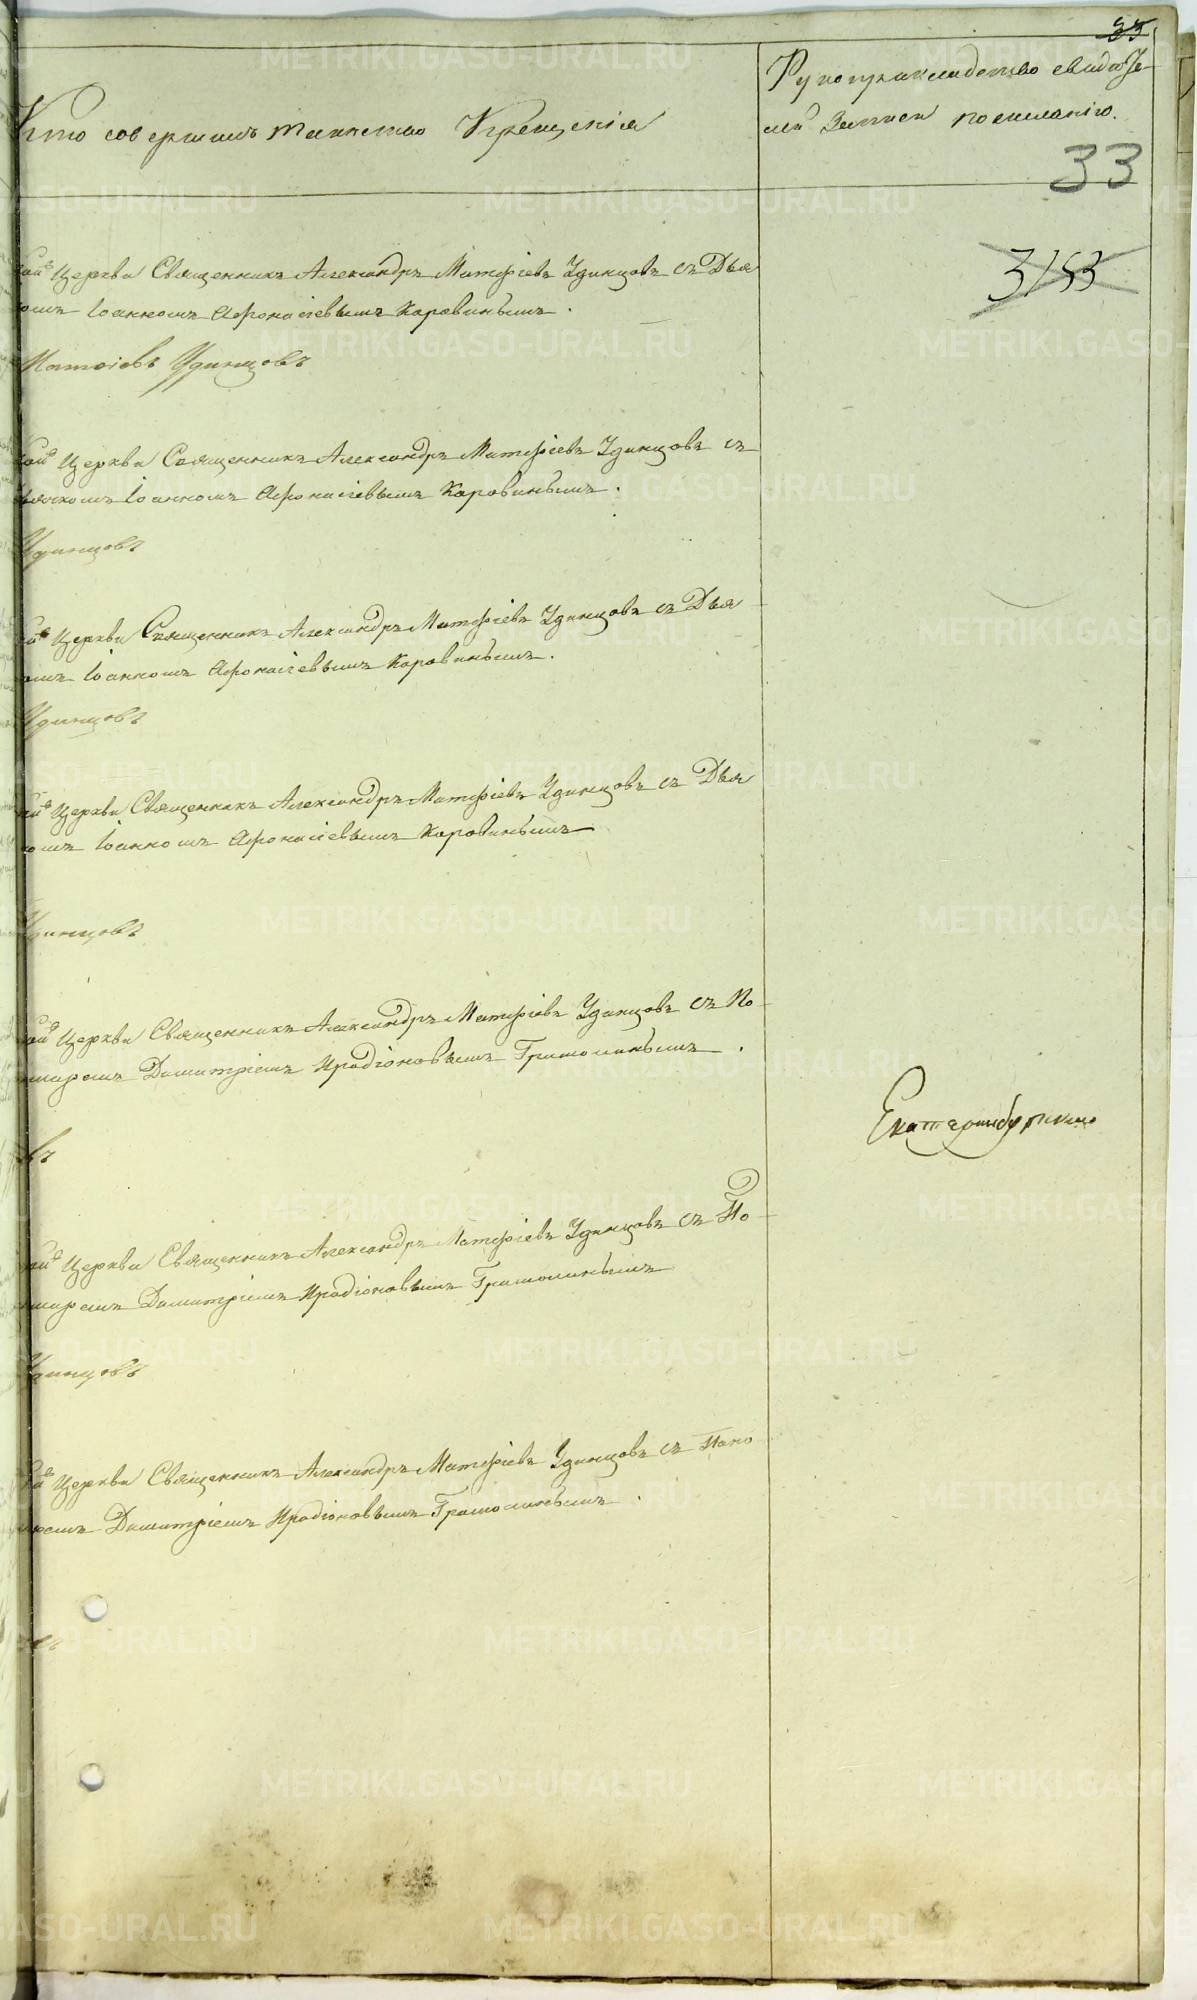 33
Кто совершилъ таинство Крещенія
Рукоприкладство свидѣте-
лей записи по желанію.
33
3153
Церкви Священникъ Александръ Матфіевъ Удинцовъ съ Дья
Іоанномъ Афонасіевымъ Коровинымъ.
Матѳіевъ Удинцовъ
Церкви Священникъ Александръ Матфіевъ Удинцовъ съ
Іоанномъ Афонасіевымъ Коровинымъ.
Удинцовъ
Церкви Священникъ Александръ Матфіевъ Удинцовъ съ Дья
Іоанномъ Афонасіевымъ Коровинымъ.
Удинцовъ
Церкви Священникъ Александръ Матфіевъ Удинцовъ съ Дья
Іоанномъ Афонасіевымъ Коровинымъ
Удинцовъ
Церкви Священникъ Александръ Матфіевъ Удинцовъ съ По
Димитріемъ Иродіоновымъ
Екатеринбургскаго
въ
Церкви Священникъ Александръ Матфіевъ Удинцовъ съ По
Димитріемъ Иродіоновымъ
Удинцовъ
Церкви Священникъ Александръ Матфіевъ Удинцовъ съ Поно
Димитріемъ Иродіоновымъ
METRIKI.GASO-URAL.RU